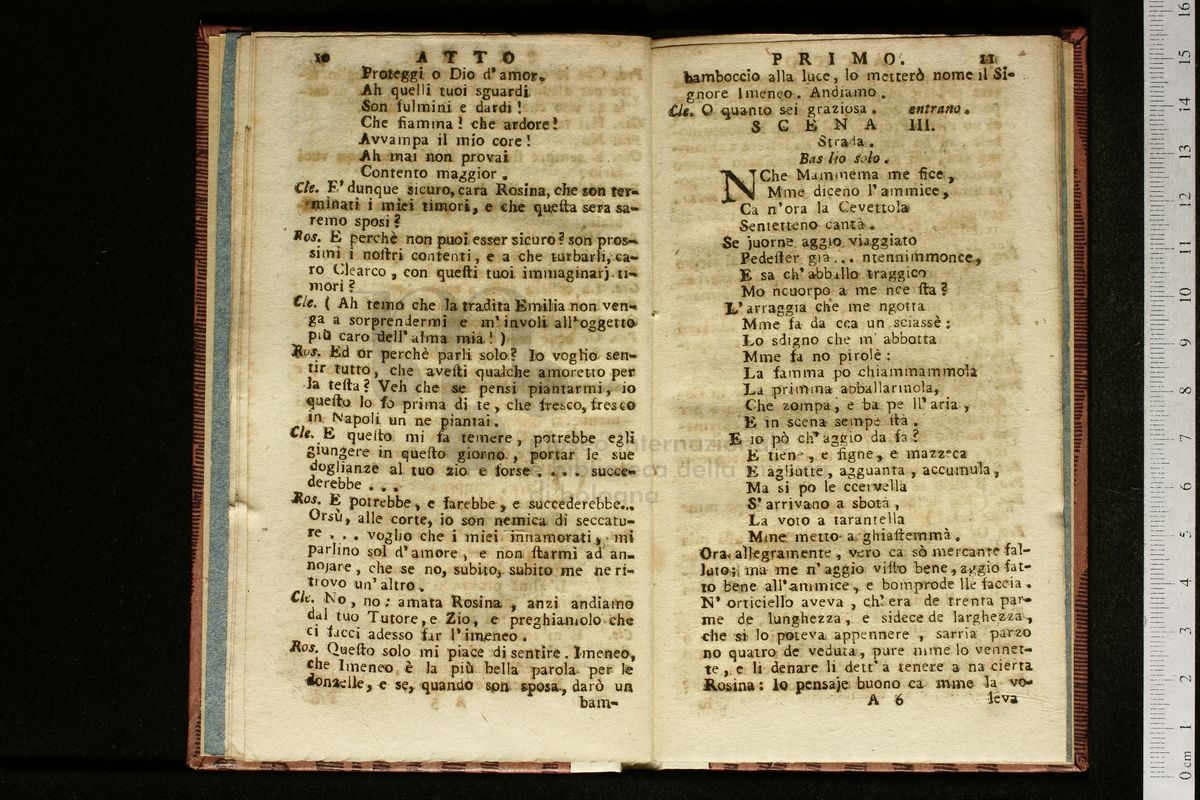 10 ATTO
Proteggi o Dio d'amor.
Ah quelli tuoi sguardi
Son fulmini e dardi!
Che fiamma! che ardore!
Avvampa il mio core!
Ah mai non provai
Contento maggior.
Cle. E' dunque sicuro, cara Rosina, che son ter-
minati i miei timori, e che questa sera sa-
remo sposi?
Ros. E perchè non puoi esser sicuro? son pros-
simi i nostri contenti, e a che turbarli, ca-
ro Clearco, con questi tuoi immaginarj ti-
mori?
Cle. ( Ah temo che la tradita Emilia non ven-
ga a sorprendermi e m'involi all'oggetto
più caro dell'alma mia! )
Ros. Ed or perchè parli solo? Io voglio sen-
tir tutto, che avesti qualche amoretto per
la testa? Veh che se pensi piantarmi, io
questo lo fo prima di te, che fresco, fresco
in Napoli un ne piantai.
Cle. E questo mi fa temere, potrebbe egli
giungere in questo giorno, portar le sue
doglianze al tuo zio e forse .... succe-
derebbe ...
Ros. E potrebbe, e farebbe, e succederebbe...
Orsù, alle corte, io son nemica di seccatu-
re ... voglio che i miei innamorati, mi
parlino sol d'amore, e non starmi ad an-
nojare, che se no, subito, subito me ne ri-
trovo un'altro.
Cle. No, no: amata Rosina, anzi andiamo
dal tuo Tutore, e Zio, e preghiamolo che
ci facci adesso far l'imeneo.
Ros. Questo solo mi piace di sentire. Imeneo,
che Imeneo è la più bella parola per le
donzelle, e se, quando son sposa, darò un
A 5 bam-
PRIMO. 11
bamboccio alla luce, lo metterò nome il Si-
gnore Imeneo. Andiamo.
Cle. O quanto sei graziosa. entrano.
SCENA III.
Strada.
Bas lio solo.
NChe Mammema me fice,
Mme diceno l'ammice,
Ca n'ora la Cevettola
Sentetteno cantà.
Se juorne aggio viaggiato
Pedester gia... ntennimmonce,
E sa ch'abballo traggico
Mo ncuorpo a me nce sta?
L'arraggia che me ngotta
Mme fa da cca un sciassè:
Lo sdigno che m'abbotta
Mme fa no pirolè:
La famma po chiammammola
La primma abballarinola,
Che zompa, e ba pe ll'aria,
E in scena sempe stà.
E io pò ch'aggio da fa?
E tiene, e figne, e mazzeca
E agliutte, agguanta, accumula,
Ma si po le ccervella
S'arrivano a sbotà,
La voto a tarantella
Mme metto a ghiastemmà.
Ora allegramente, vero ca sò mercante fal-
luto; ma me n'aggio visto bene, aggio fat-
to bene all'ammice, e bomprode lle faccia.
N'orticiello aveva, ch'era de trenta par-
me de lunghezza, e sidece de larghezza,
che si lo poteva appennere, sarria parzo
no quatro de veduta, pure mme lo vennet-
te, e li denare li dett'a tenere a na cierta
Rosina: Io pensaje buono ca mme la vo-
A 6 leva